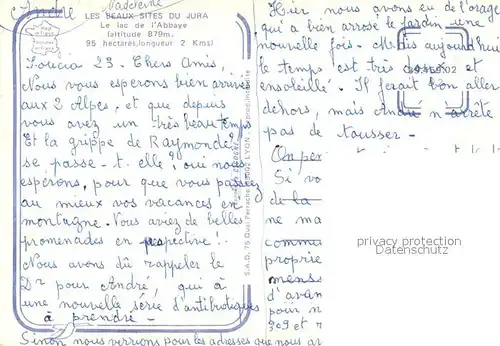 Madeleine
André
LES BEAUX SITES DU JURA
Le lac de l'Abbaye
(altitude 879m.
95 hectares, longueur 2 Kms)
Foucia 23 - Chers Amis,
Nous vous esperons bien arrivés
aux 2 Alpes, et que depuis
vous avez un très beau temps
Et la grippe de Raymonde?
se passe-t-elle? oui nous
espérons, pour que vous passiez
au mieux vos vacances en
montagne. Vous aviez de belles
promenades en perspective!.
Nous avons dû rappeler le
Dr pour André, qui à
une nouvelle série d'antibiotiques
à prendre -
Sinon nous verrions pour les adresses que nous
S.A.D, 75 Quai Perrache 69002 LYON
Hier nous avons eu de l'orage
qui a bien arrosé le jardin une
nouvelle fois. Mais aujourd'hui
le temps est très et
ensoleillé. Il ferait bon aller
dehors, mais André n'arrête
pas de tousser -
On per
Si vo
de la
ne ma
commu
proprie
mens
d'avan
pour n
309 et
privacy protection
Datenschutz